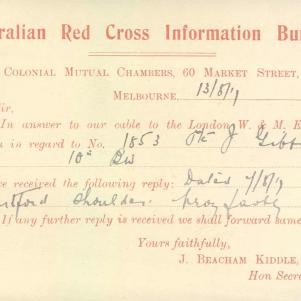 ralian Red Cross Information Bu
COLONIAL MUTUAL CHAMBERS, 60 MARKET STREET,
MELBOURNE, 13/8/17
ir,
In answer to our cable to the London W. & M. E
n in regard to No. 1853 Pte J Gibb
10th Bn
e received the following reply: Dated 7/8/17
shoulder
If any further reply is received we shall forward same
Yours faithfully,
J. BEACHAM KIDDLE,
Hon Secre